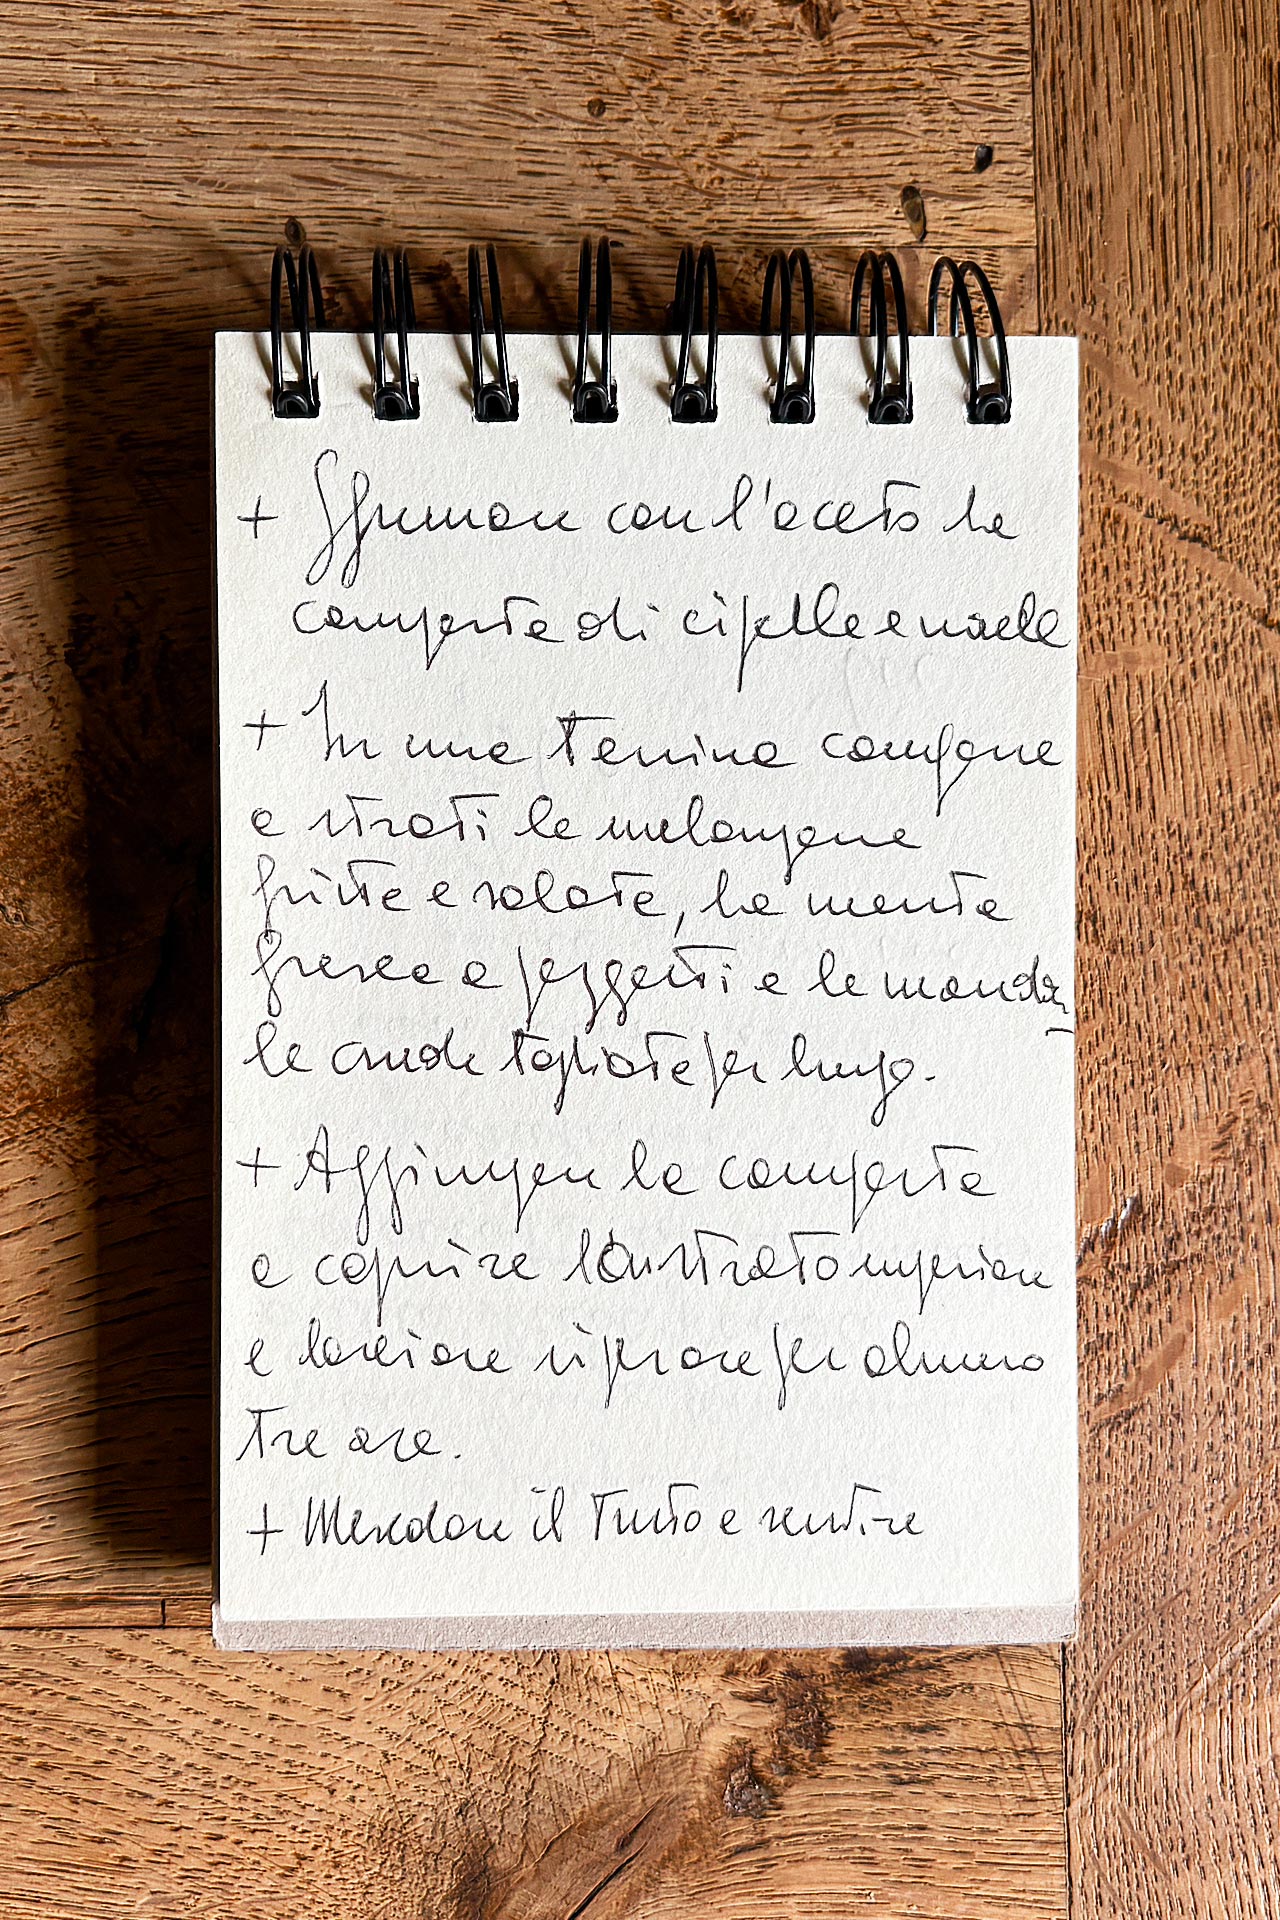 + Sfumare con l'aceto la
composta di cipolle e miele
+ In una terrina comporre
a strati le melanzane
fritte e salate, la menta
fresca a pezzetti e le mandor
le crude tagliate per lungo.
+ Aggiungere la composta
a coprire strato superiore
e lasciare riposare per almeno
tre ore.
+ Mescolare il tutto e servire